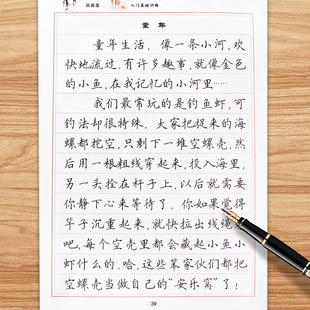 入门基础训练
童年
童年生活，像一条小河，欢
快地流过，有许多趣事，就像金色
的小鱼，在我记忆的小河里……
我们最常玩的是钓鱼虾，可
钓法却很特殊，大家把捉来的海
螺都挖空，只剩下一堆空螺壳，然
后用一根粗线穿起来，投入海里，
另一头拴在杆子上，以后就需要
你静下心来等待了。你如果觉得
竿子沉重起来，就快拉出线绳
吧，每个空壳里都会藏起小鱼小
虾什么的。哈，这些笨家伙们都把
空螺壳当做自己的“安乐窝”了！
39